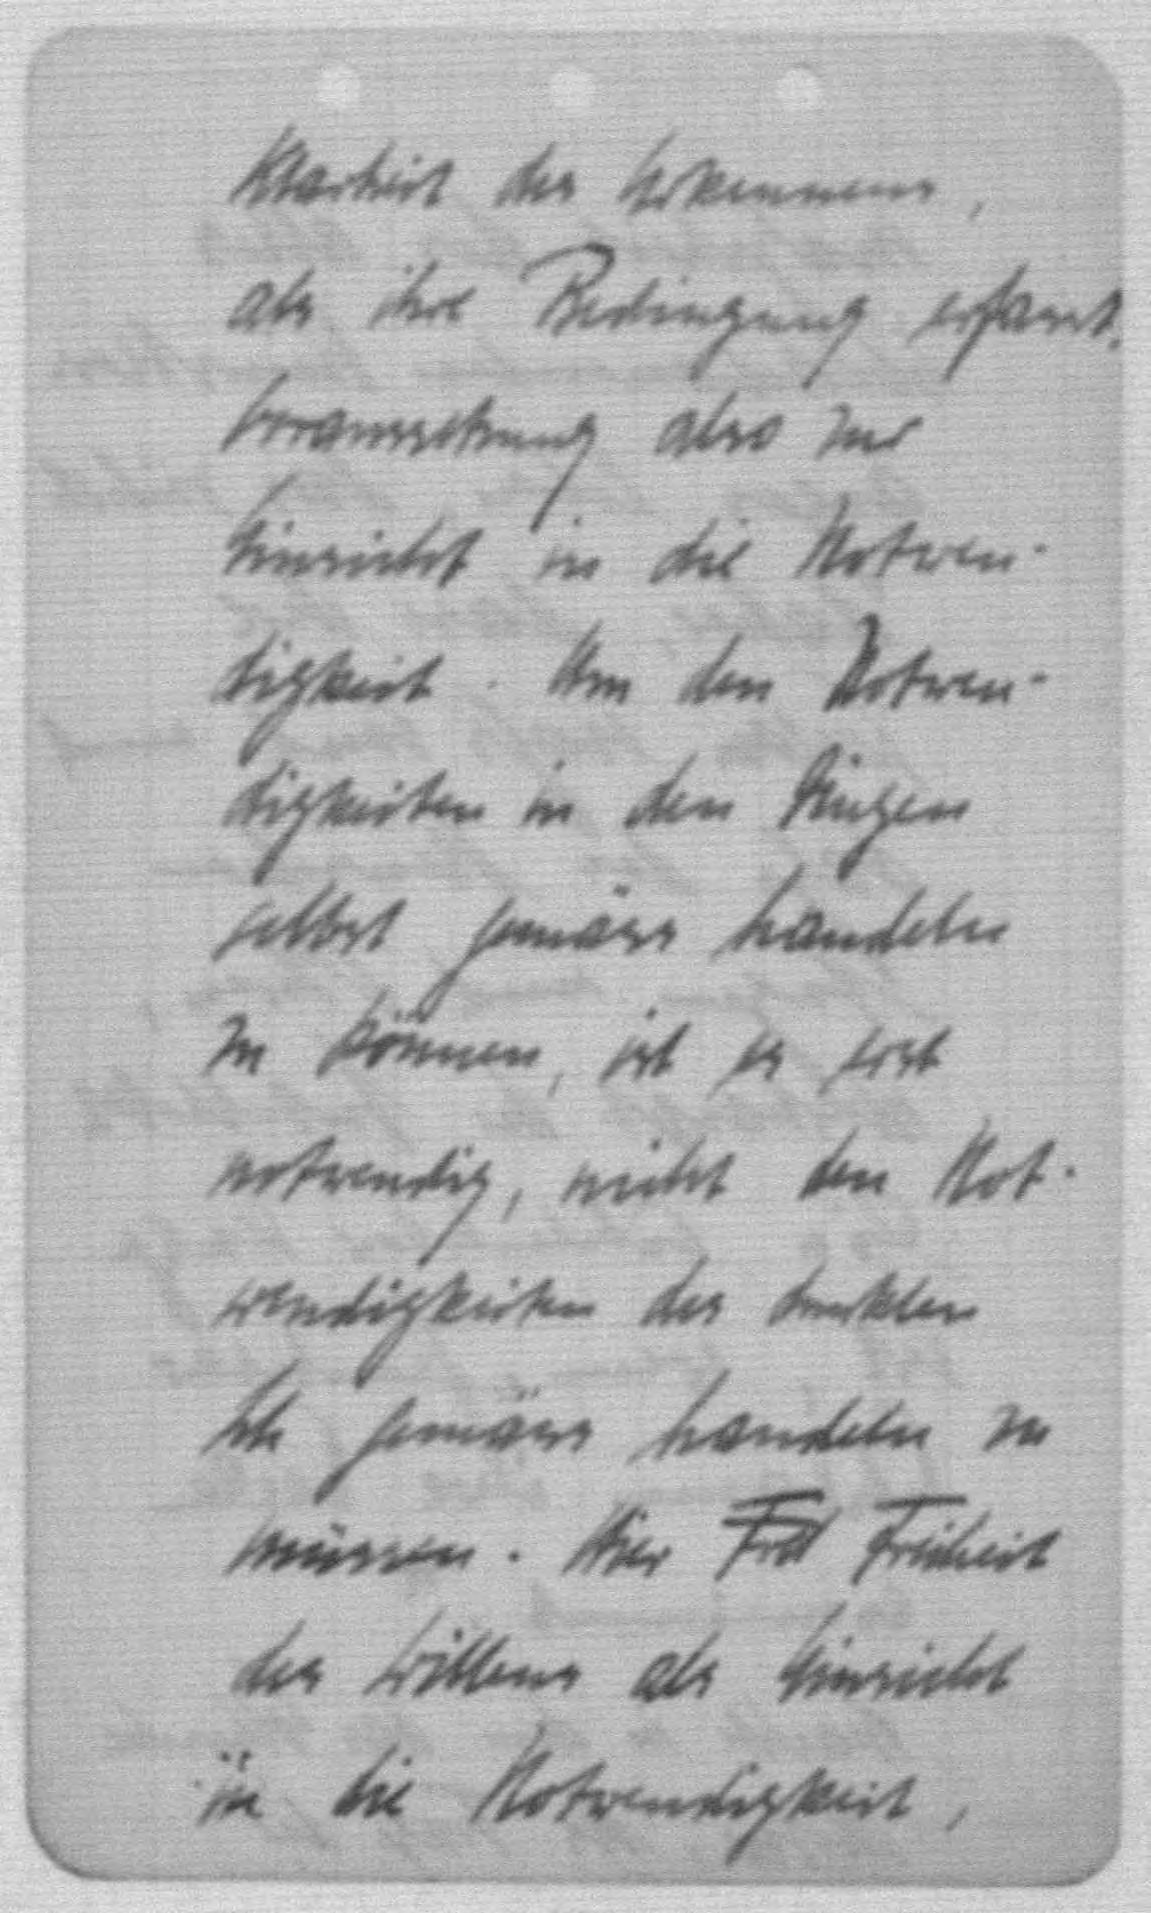 Klarheit des Erkennens,
als ihre Bedingung erfasst.
Voraussetzung also zur
Einsicht in die Notwen-
digkeit. Um den Notwen-
digkeiten in den Dingen
selbst gemäss handeln
zu können, ist es erst
notwendig, nicht den Not-
wendigkeiten des dunklen
Ich gemäss handeln zu
müssen. Hier Frei Freiheit
des Willens als Einsicht
in die Notwendigkeit,